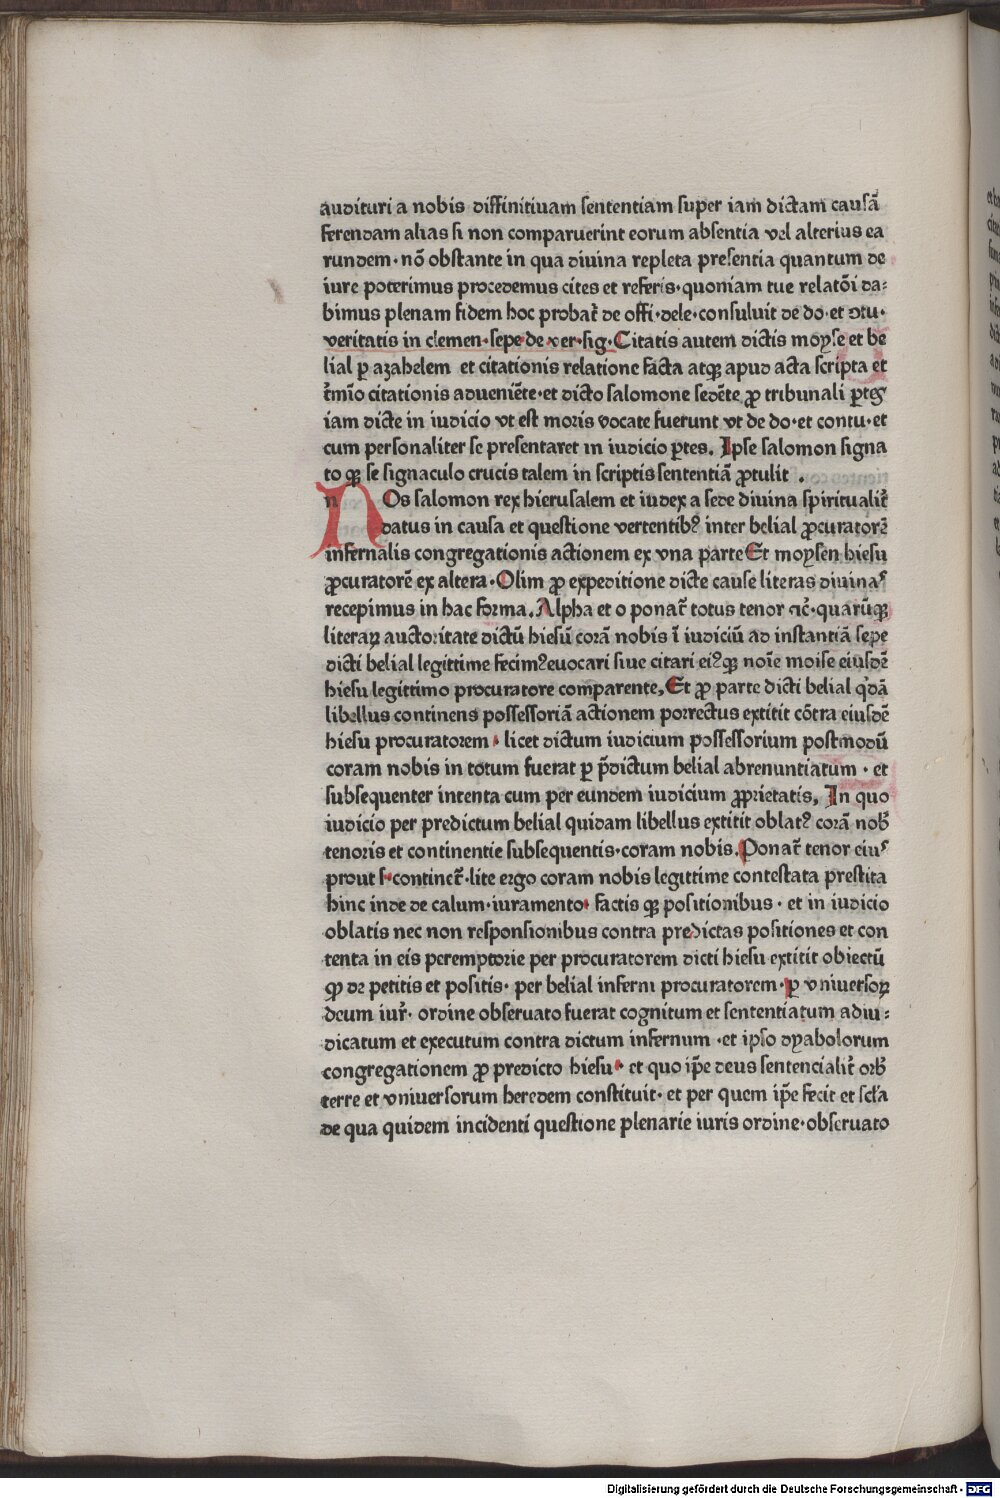 audituri a nobis diffinitiuam sententiam super iam dictam causã
ferendam alias si non comparuerint eorum absentia vel alterius ea
rundem· nõ obstante in qua diuina repleta presentia quantum de
iure poterimus procedemus cites et referis·quoniam tue relatõi da⸗
bimus plenam fidem hoc probat̃ de offi·dele·consuluit de do·et ɔtu·
veritatis in clemen·sepe·de ver·sig·Citatis autem dictis moyse et be
lial ꝑ azahelem et citationis relatione facta atqꝫ apud acta scripta et
t̃mĩo citationis adueniẽte·et dicto salomone sedẽte ꝓ tribunali ꝑteſ
iam dicte in iudicio vt est moris vocate fuerunt vt de do·et contu·et
cum personaliter se presentaret in iudicio ꝑtes. Ipse salomon signa
to qꝫ se signaculo crucis talem in scriptis sententiã ꝓtulit .
nOs salomon rex hierusalem et iudex a sede diuina spiritualit̃
datus in causa et questione vertentibꝰ inter belial ꝓcuratorẽ
infernalis congregationis actionem ex vna parte Et moysen hiesu
ꝓcuratorẽ ex altera·Olim ꝓ expeditione dicte cause literas diuinaˢ
recepimus in hac forma.Alpha et o ponat̃ totus tenor ⁊c̃·quarũqꝫ
literaꝝ auctoritate dictũ hiesũ corã nobis ĩ iudiciũ ad instantiã sepe
dicti belial legittime fecimꝰeuocari siue citari eiꝰqꝫ noĩe moise eiusdẽ
hiesu legittimo procuratore comparente,Et ꝓ parte dicti belial qͥdã
libellus continens possessoriã actionem porrectus extitit cõtra eiusdẽ
hiesu procuratorem· licet dictum iudicium possessorium postmodũ
coram nobis in totum fuerat ꝑ p̃dictum belial abrenuntiatum · et
subsequenter intenta cum per eundem iudicium ꝓprietatis, In quo
iudicio per predictum belial quidam libellus extitit oblatꝰ corã nob̃
tenoris et continentie subsequentis·coram nobis.Ponat̃ tenor eiuˢ
prout s·continet̃·lite ergo coram nobis legittime contestata prestita
hinc inde de calum·iuramento· factis qꝫ positionibus · et in iudicio
oblatis nec non responsionibus contra predictas positiones et con
tenta in eis peremptorie per procuratorem dicti hiesu extitit obiectũ
ꝙ de petitis et positis· per belial inferni procuratorem·ꝑ vniuersoꝝ
deum iur̃· ordine obseruato fuerat cognitum et sententiatum adiu⸗
dicatum et executum contra dictum infernum ·et ipso dyabolorum
congregationem ꝓ predicto hiesu· et quo ip̃e deus sentencialit̃ orb̃
terre et vniuersorum heredem constituit· et per quem ip̃e fecit et scl̃a
de qua quidem incidenti questione plenarie iuris ordine·obseruato
Digitalisierung gefördert durch die Deutsche Forschungsgemeinschaft · DFG